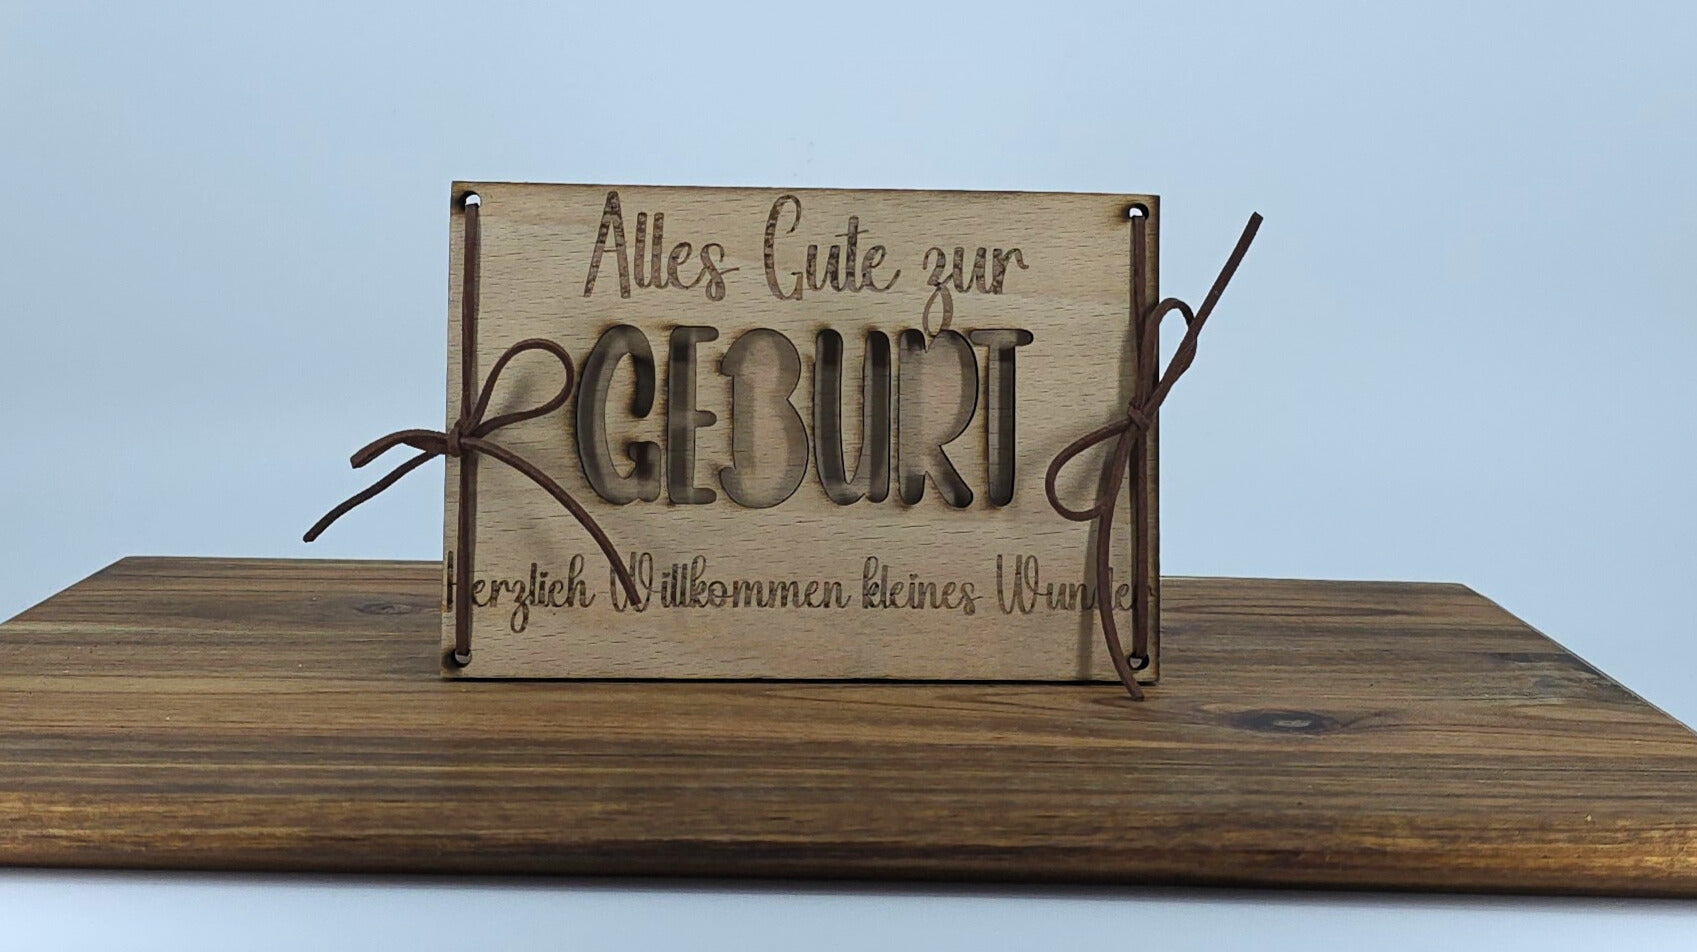 Alles Gute zur
GEBURT
Herzlich Willkommen kleines Wunder